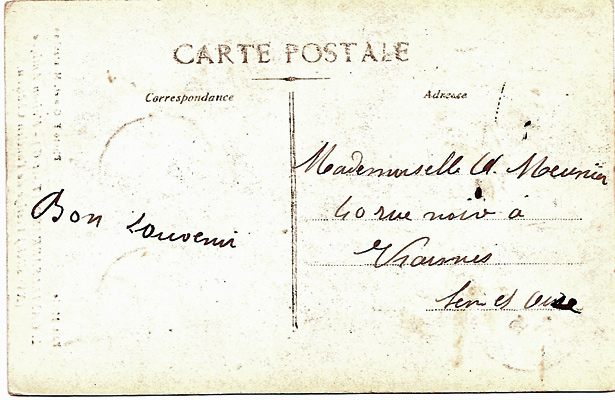 CARTE POSTALE
Correspondance
Adresse
Bon Souvenir
Mademoiselle A. Meunier
40 rue noir à
Viarmes
Sein et Oise